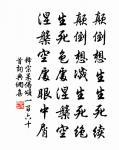 顛倒想生生死續
顛倒想滅生死絕
生死絕處涅槃空
涅槃空處眼中屑
釋宗杲偈頌一百六十
首詞典網